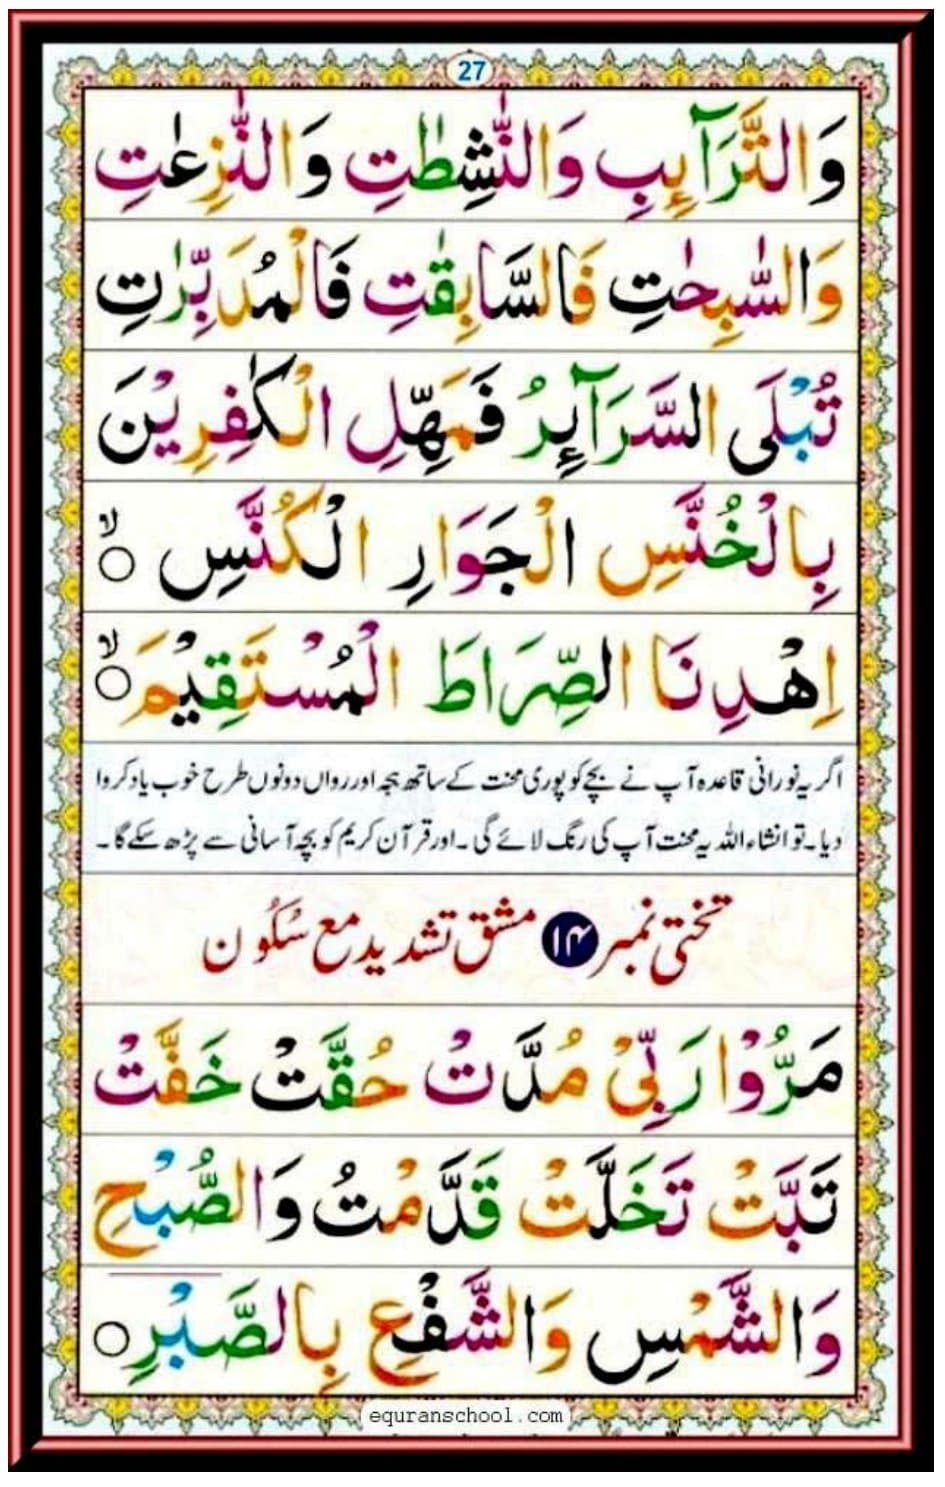 27
وَالتَّرَآىِٕبِ وَالنّٰشِطٰتِ وَالنّٰزِعٰتِ
وَالسّٰبِحٰتِ فَالسَّابِقٰتِ فَالْمُدَبِّرٰتِ
تُبْلَى السَّرَآىِٕرُ فَمَهِّلِ الْكٰفِرِيْنَ
بِالْخُنَّسِ الْجَوَارِ الْكُنَّسِ ۙ○
اِهْدِنَا الصِّرَاطَ الْمُسْتَقِيْمَ ۙ○
اگر یہ نورانی قاعدہ آپ نے بچے کو پوری محنت کے ساتھ ہجہ اور رواں دونوں طرح خوب یاد کروا
دیا۔ تو انشاء اللہ یہ محنت آپ کی رنگ لائے گی۔ اور قرآن کریم کو بچہ آسانی سے پڑھ سکے گا۔
تختی نمبر ۱۴ مشق تشدید مع سُکُون
مَرُّوْا رَبِّىْ مُدَّتْ حُقَّتْ خَفَّتْ
تَبَّتْ تَخَلَّتْ قَدَّمْتُ وَالصُّبْحِ
وَالشَّمْسِ وَالشَّفْعِ بِالصَّبْرِ ○
equranschool.com